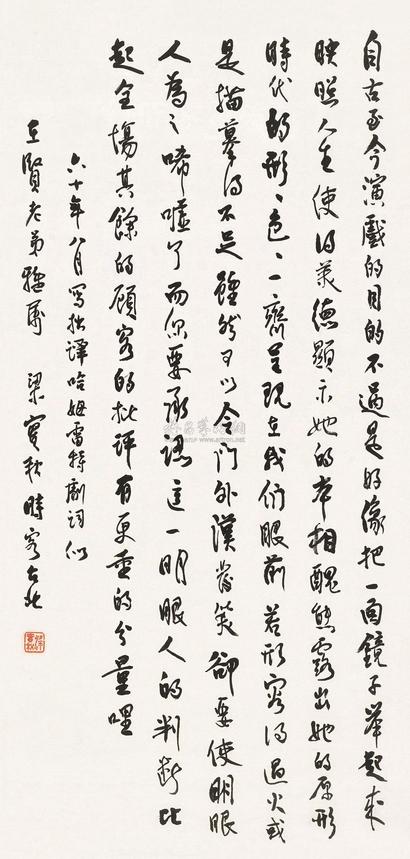 自古至今演戲的目的不過是好像把一面鏡子舉起來
映照人生使得美德顯示她的本相醜態露出她的原形
時代的形、色、一齊呈現在我們眼前若形容得過火或
是描摹得不足雖然可以令門外漢發笑卻要使明眼
人為之唏噓了而你要承認這一明眼人的判斷比
起全場其餘的顧客的批評有更重的分量哩
六十年八月寫拙譯哈姆雷特劇詞似
在賢老弟雅屬 梁實秋時客台北
梁實秋